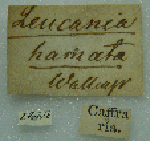 Leucania
hamata
Wallengr
Caffra
ria.